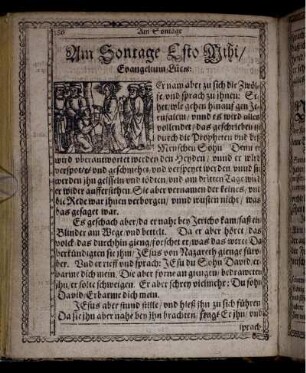 Am Sontage
Am Sontage Esto Mihi/
Evangelium Luce:
Er nam aber zu sich die Zwöl-
fe, und sprach zu ihnen: Se-
het wir gehen hinauf gen Je-
rusalem/ unnd es wird alles
vollendet/ das geschrieben ist
durch die Propheten von des
Menschen Sohn Denn er
wird uberantwortet werden den Heyden/ unnd er wird
verspottet und geschmehet und verspeyet werden unnd sie
werden ihn geisseln und tödten, und am dritten Tage wird
er wider aufferstehen, Sie aber vernamen der keines, und
die Rede war ihnen verborgen, unnd wusten nicht, was
das gesaget war.
Es geschach aber/ da er nahe bey Jericho kam/ saß ein
Blinder am Wege und bettelt. Da er aber höret das
volck das durchhin gieng/ forschet er, was das were: Da
verkündigten sie ihm/ JEsus von Nazareth gienge für-
ber. Und er rieff und sprach: JEsu du Sohn David, er-
barme dich mein. Die aber forne an giengen/ bedraweten
ihn, er solte schweigen. Er aber schrey vielmehr: Du sohn
David/ Erbarme dich mein.
JEsus aber stund stille/ und hieß ihn zu sich führen
Da sie ihn aber nahe bey ihn brachten, fragt Er ihn/ und
sprach: